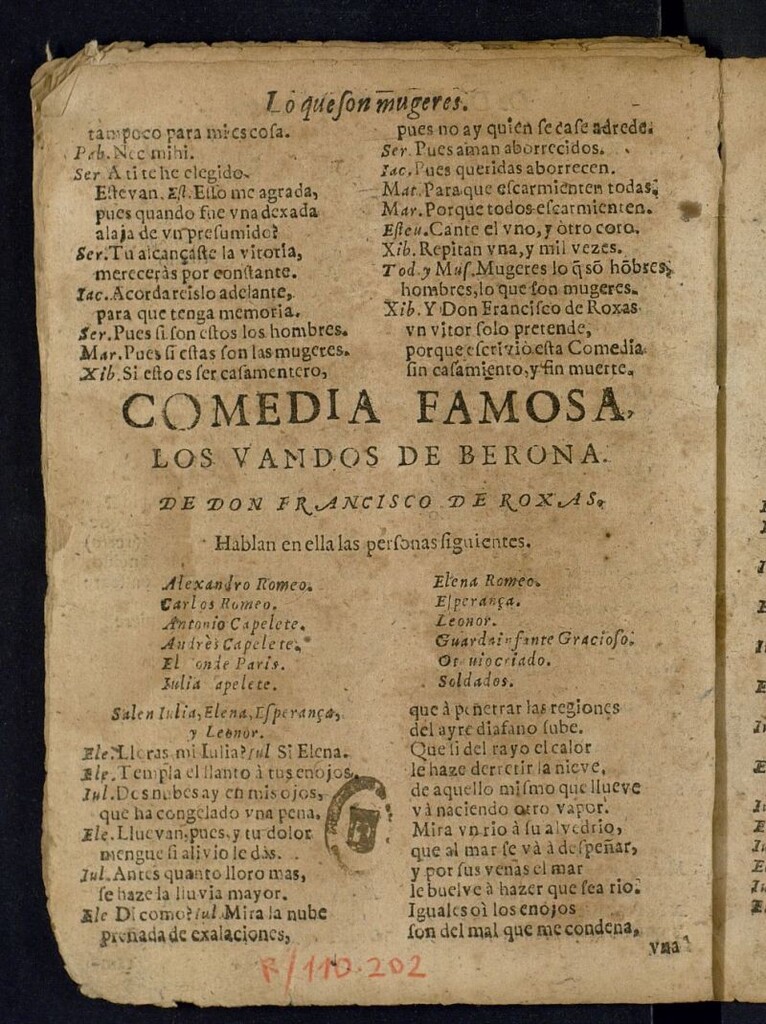 Lo que son mugeres.
tampoco para mi es cosa.
Pab. Nec mihi.
Ser A ti te he elegido
Estevan. Est. Esso me agrada,
pues quando fue vna dexada
alaja de vn presumido?
Ser. Tu alcançaste la vitoria,
mereceràs por constante.
Iac. Acordareislo adelante,
para que tenga memoria.
Ser. Pues si son estos los hombres.
Mar. Pues si estas son las mugeres.
Xib. Si esto es ser casamentero,
pues no ay quien se case adrede.
Ser. Pues aman aborrecidos.
Iac. Pues queridas aborrecen.
Mat. Para que escarmienten todas.
Mar. Porque todos escarmienten.
Esteu. Cante el vno, y otro coro.
Xib. Repitan vna, y mil vezes.
Tod. y Mus. Mugeres lo q̃ sõ hõbres,
hombres, lo que son mugeres.
Xib. Y Don Francisco de Roxas
vn vitor solo pretende,
porque escriviò esta Comedia
sin casamiento, y sin muerte.
COMEDIA FAMOSA,
LOS VANDOS DE BERONA.
DE DON FRANCISCO DE ROXAS.
Hablan en ella las personas siguientes.
Alexandro Romeo.
Carlos Romeo.
Antonio Capelete.
Andrès Capelete.
El onde Paris.
Iulia apelete.
Elena Romeo.
Esperança.
Leonor.
Guardainfante Gracioso.
Ot uio criado.
Soldados.
Salen Iulia, Elena, Esperança,
y Leonor.
Ele. Lloras mi Iulia? Iul Si Elena.
Ele. Templa el llanto à tus enojos.
Iul. Dos nubes ay en mis ojos,
que ha congelado vna pena.
Ele. Lluevan, pues, y tu dolor
mengue si alivio le dàs.
Iul. Antes quanto lloro mas,
se haze la lluvia mayor.
Ele Di como? Iul. Mira la nube
preñada de exalaciones,
que à penetrar las regiones
del ayre diafano sube.
Que si del rayo el calor
le haze derretir la nieve,
de aquello mismo que llueve
và naciendo otro vapor.
Mira vn rio à su alvedrio,
que al mar se và à despeñar,
y por sus venas el mar
le buelve à hazer que sea rio.
Iguales oì los enojos
son del mal que me condena,
vna
R/110.202